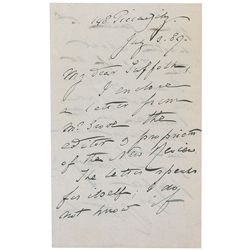 198 Piccadilly.
My dear Suffolk,
I enclose
a letter from
Mr. Grove the
editor & proprietor
of the New Review
The letter speaks
for itself: I do
not know if